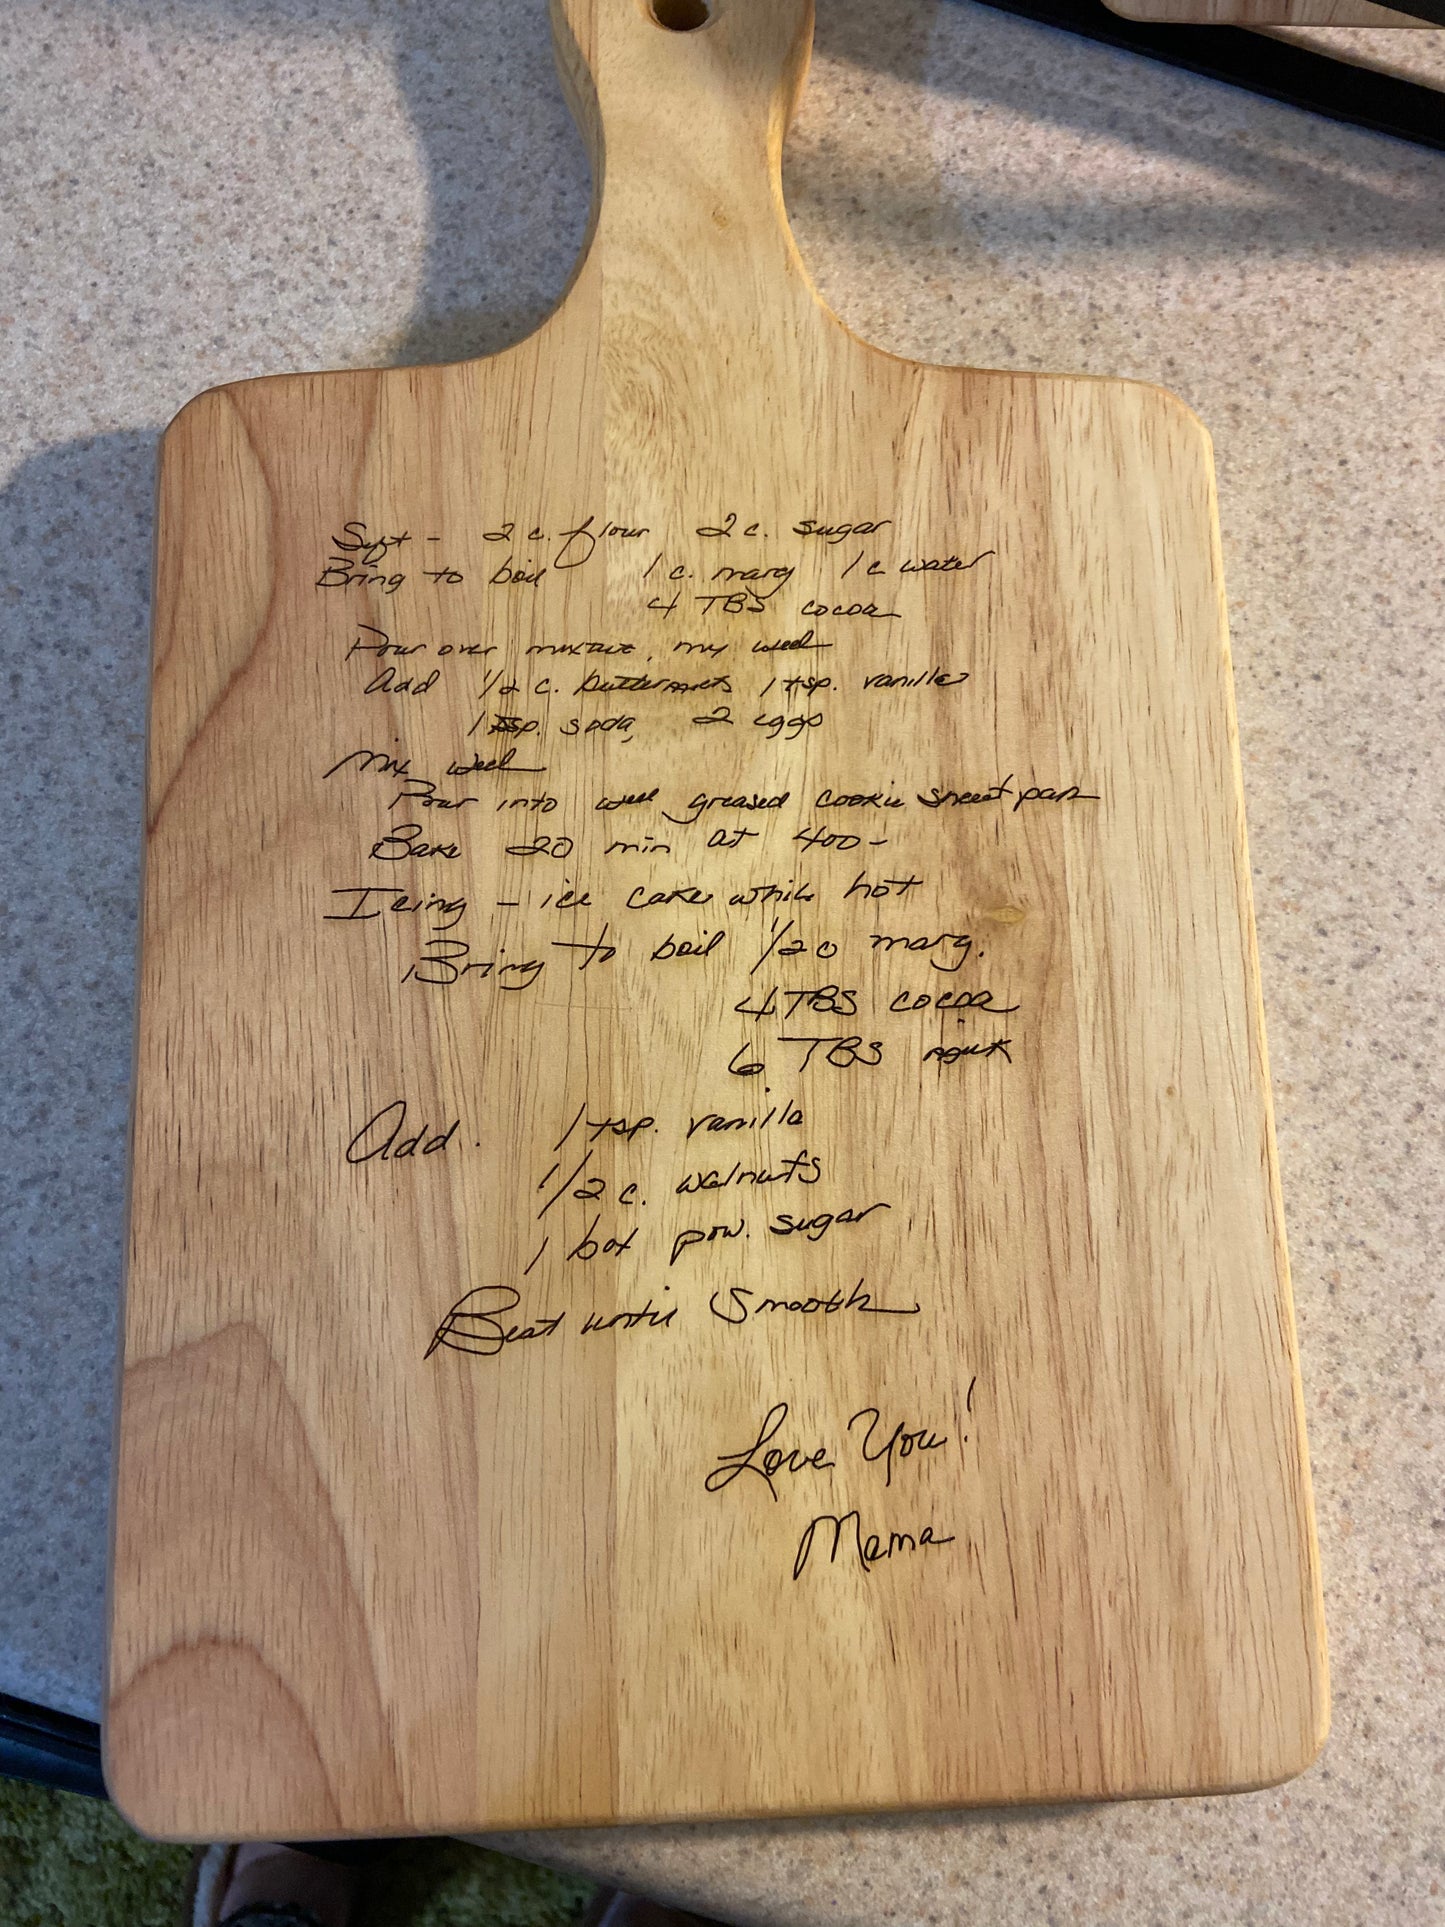 Sift - 2 c. flour 2 c. sugar
Bring to boil 1 c. marg 1 c water
4 TBS cocoa
Pour over mixture, mix well
Add 1/2 c. 1 tsp. vanilla
1 tsp. soda, 2 eggs
Mix well
Pour into well greased cookie sheet pan
Bake 20 min at 400-
Icing - ice cake while hot
Bring to boil 1/2 c marg.
4 TBS cocoa
6 TBS
Add. 1 tsp. vanilla
1/2 c. walnuts
1 box pow. sugar
Beat until Smooth
Love You!
Mama